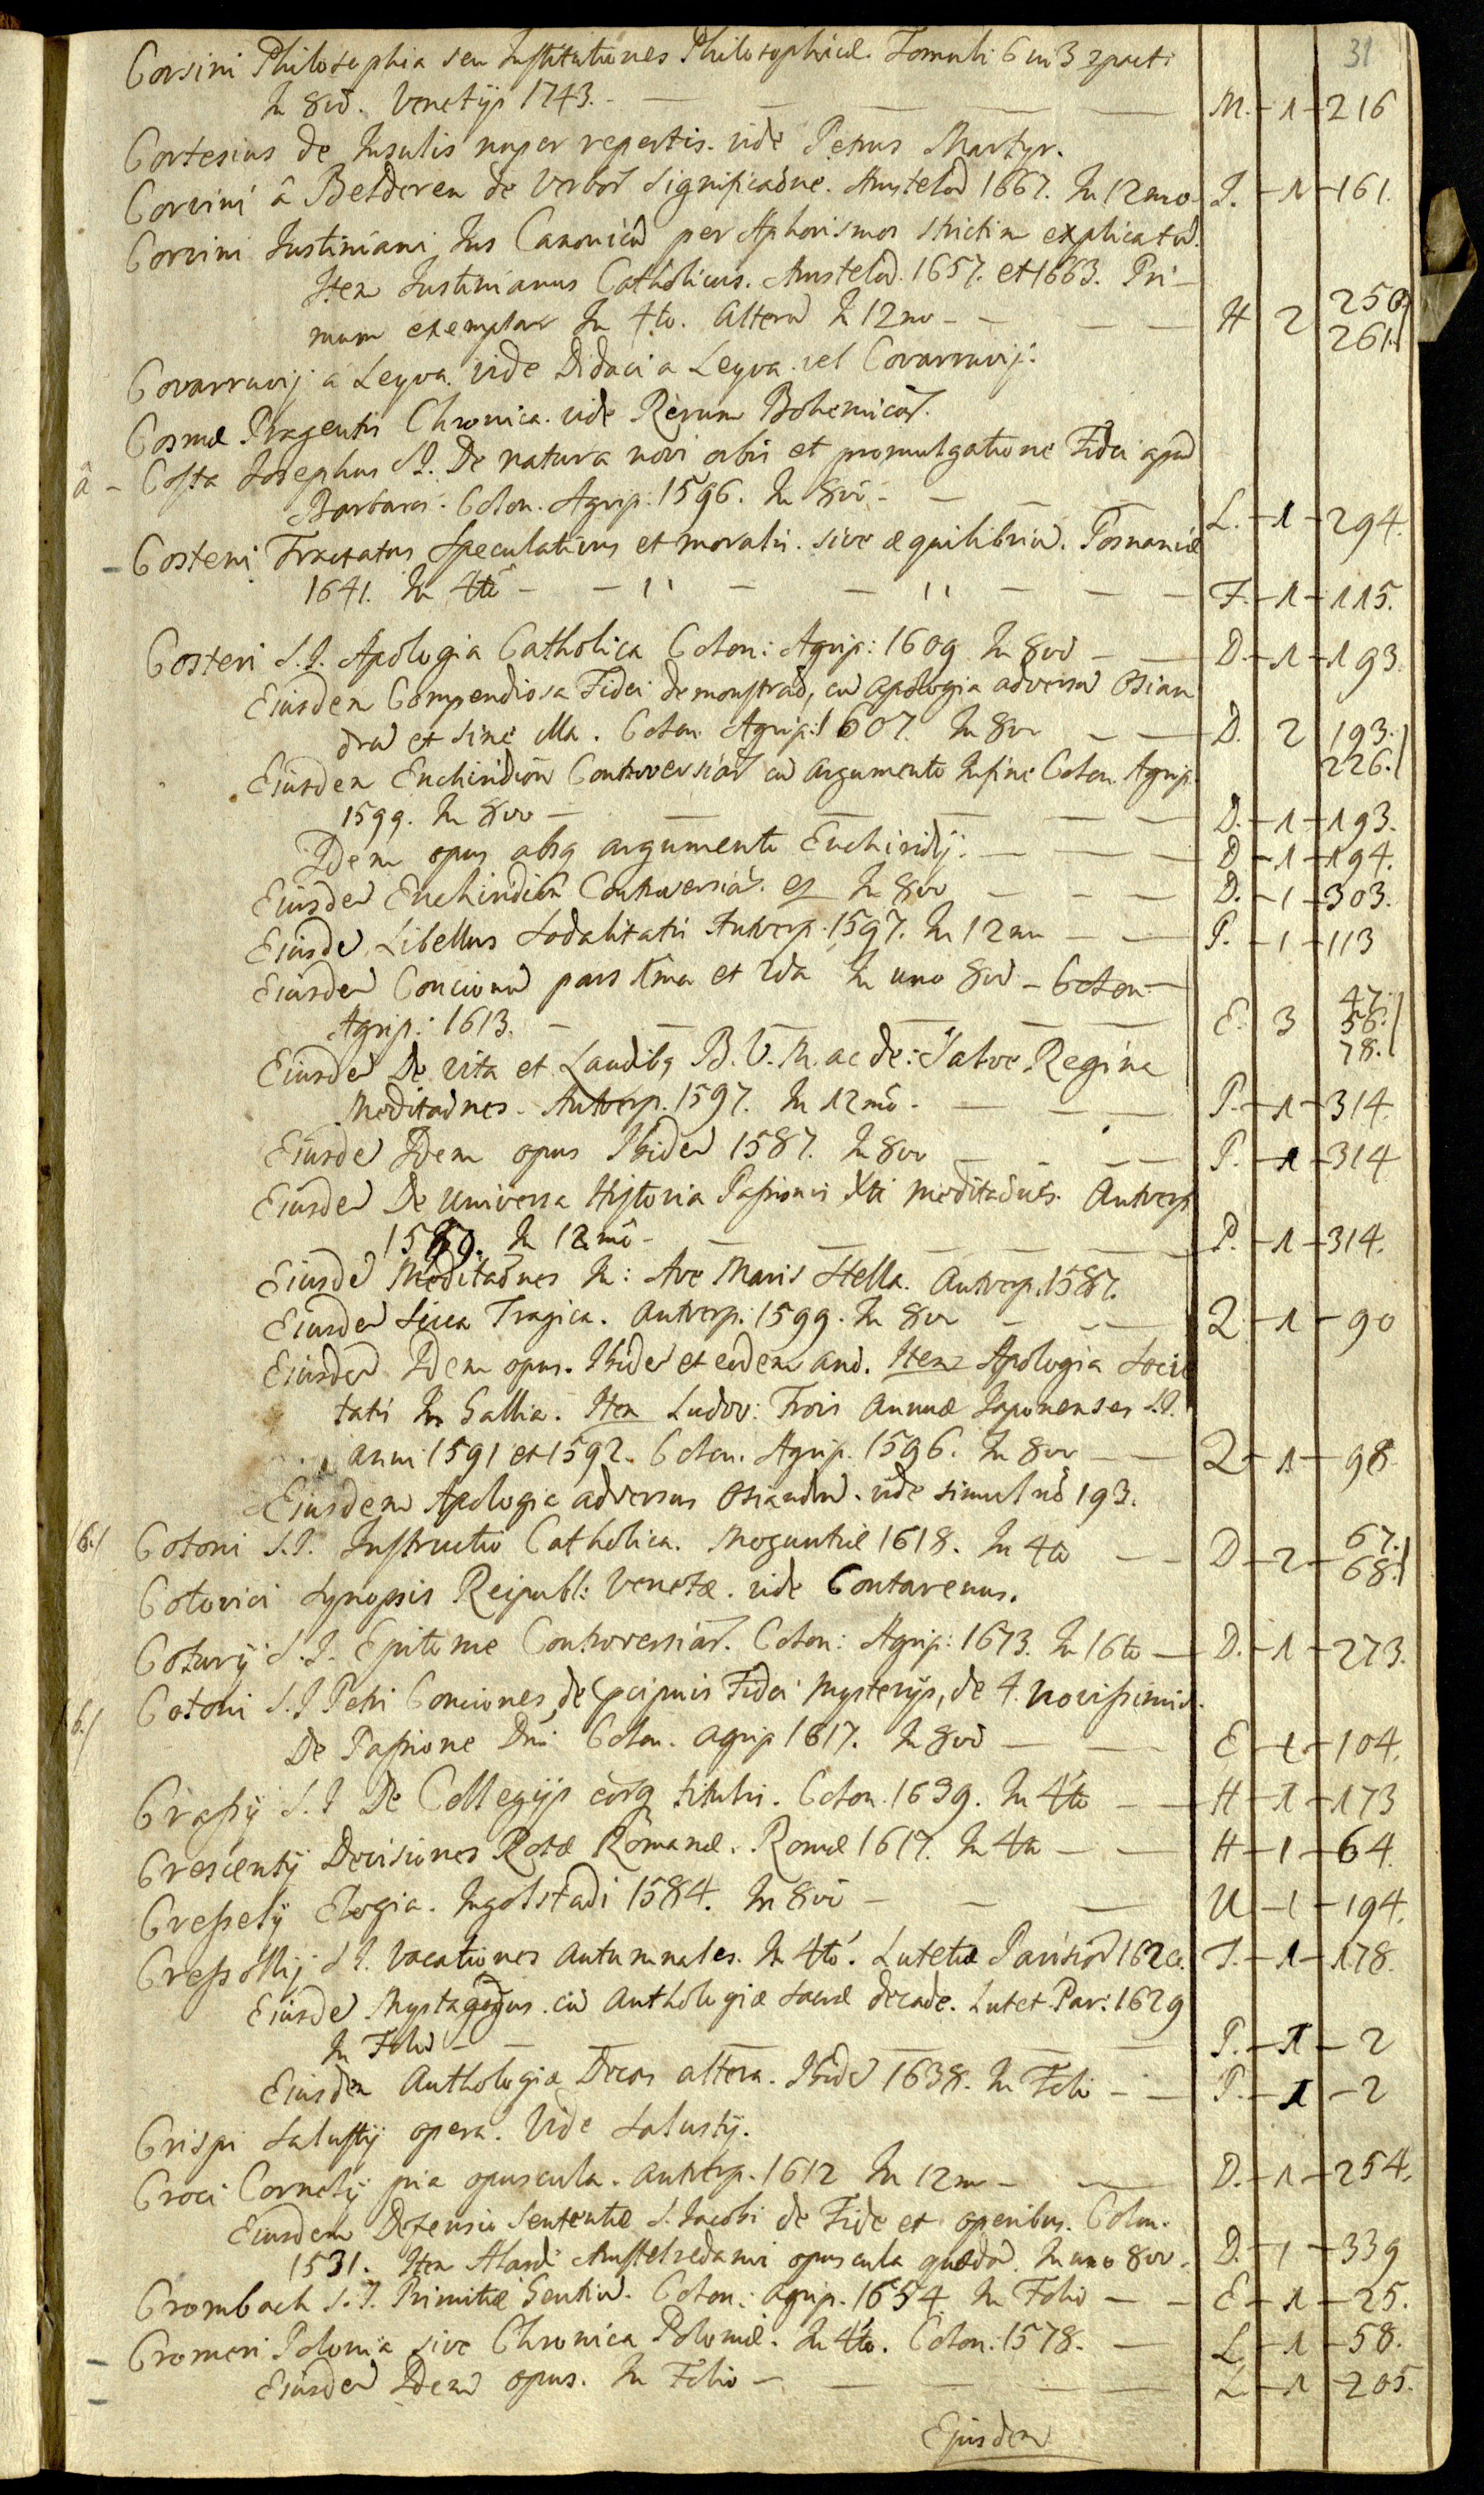 31
Corsini Philosophia seu Institutiones Philosophicæ. Tomuli 6 in 3
In 8vô. Venetijs 1743. M. 1 216
Cortesius de Insulis nuper repertis. vide Petrus Martyr.
Corvini â Belderen de verbor significaone. Amstelod 1667. In 12mo I. 1 161.
Corvini Justiniani Jus Canonicû per Aphorismos strictim explicatû.
Item Justinianus Catholicus. Amstelod. 1657. et 1663. Pri-
mum exemplar In 4to. alterû In 12mo H 2 250 261.
Covarruvij a Leyva. vide Didaci a Leyva. vel Covarruvij.
Cosmæ Pragensis Chronica. vide Rerum Bohemicar.
â - Costa Josephus S.J. De natura novi orbis et promulgatione Fidei apud
Barbaros. Colon. Agrip: 1596. In 8vô L. 1 294.
Costeni Tractatus Speculativus et moralis. sive æquilibriû. Posnaniæ
1641. In 4tô F. 1 115.
Costeri S.J. Apologia Catholica Colon: Agrip: 1609 In 8vô D. 1 193.
Eiusdem Compendiosa Fidei demonstraô, cû apologia adversû Osian
drû et sine illa. Colon Agrip: 1607. In 8vo D. 2 193. 226.
Eiusdem Enchiridion Controversiar cû argumento In fine Colon. Agrip.
1599. In 8vo D. 1 193.
Idem opus absq argumento Enchiridij. D 1 194.
Eiusdem Enchiridion Controversiar. In 8vo D. 1 303.
Eiusdê Libellus Sodalitatis Antverp. 1597. In 12mo P. 1 113
Eiusdem Concionû pars 1ma et 2da In uno 8vô Colon
Agrip: 1613. E. 3 47. 56. 78.
Eiusdem De vita et Laudibq B.V.M. ac de: Salve Regina
Meditaônes. Antverp. 1597. In 12mô. P. 1 314.
Eiusdê Idem opus Ibidem 1587. In 8vo P. 1 314
Eiusdem De universa Historia Passionis Xti meditaônes. Antverp
In 12mô P. 1 314.
Eiusdê Meditaônes In: Ave Maris Stella. Antverp. 1587.
Eiusdem Sicca Tragica. Antverp: 1599. In 8vo Q 1 90
Eiusdem Idem opus. Ibidê et eodem anô. Item Apologia Socie
tatis In Gallia. Item Ludov: Frois annuæ Japonenses S.J.
anni 1591 et 1592. Colon. Agrip. 1596. In 8vo Q 1 98
Eiusdem Apologia adversus Osiandrû. vide simul nô 193.
/6./ Cotoni S.J. Instructio Catholica. Moguntiæ 1618. In 4tô D 2 67. 68.
Cotovici Synopsis Reipubl: Venetæ. vide Contarenus.
Coturij S.J. Epitome Controversiar. Colon: Agrip: 1673. In 16to D. 1 273.
/6./ Cotoni S.J. Petri Conciones, de pcipuis Fidei mysterijs, de 4. novissimis.
De Passione Dni Colon. Agrip 1617. In 8vô E 1 104.
Crassij S.J. De Collegijs eorq titulis. Colon. 1639. In 4to H 1 173
Crescentij Decisiones Rotæ Romanæ. Romæ 1617. In 4to H 1 64.
Cressetij Elogia. Ingolstadi 1584. In 8vô U 1 194.
Cressollij S.J. Vacationes autumnales. In 4tô. Lutetiæ Parisior I. 1 178.
Eiusdê Mystagogus. cû Anthologiæ sacræ decade. Lutet. Par: 1629
In Foliô P. 1 2
Eiusdem Anthologia Decas altera. Ibidê 1638. In Folio P. 1 2
Crispi Salustij opera. Vide Salustij.
Croci Cornelij pia opuscula. Antverp. 1612 In 12mo D. 1 254.
Eiusdem Defensio Sententiæ S. Jacobi de Fide et operibus. Colon.
1531. Item Alardi Amstelredami opuscula quædâ. In uno 8vo. D. 1 339
Crombach S.J. Primitiæ Gentiû. Colon: Agrip. 1654 In Folio E 1 25.
Cromeri Polonia sive Chronica Poloniæ. In 4to. Colon: 1578. L 1 58.
Eiusdem Idem opus. In Folio L 1 205.
Ejusdem